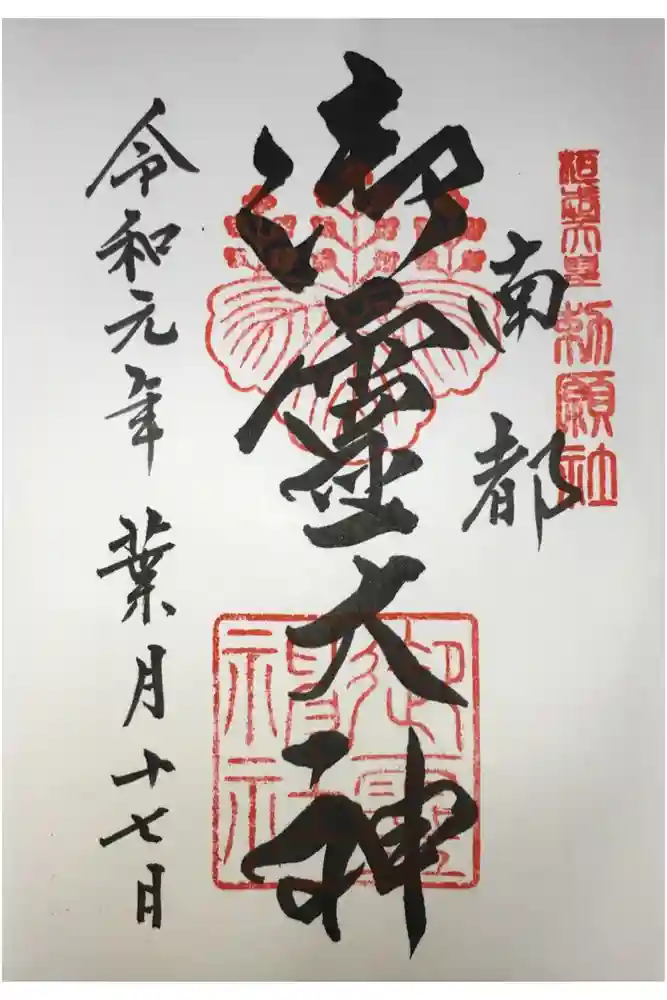 桓武天皇勅願社
南都
御靈大神
御靈神社
令和元年 葉月 十七日